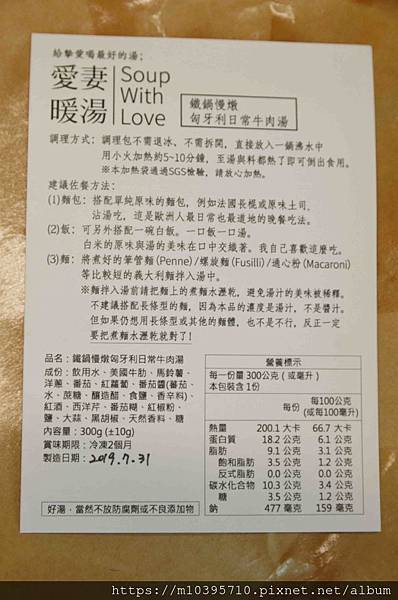 給摯愛喝最好的湯；
愛妻暖湯
Soup
With
Love
鐵鍋慢燉
匈牙利日常牛肉湯
調理方式：調理包不需退冰、不需拆開，直接放入一鍋沸水中
用小火加熱約5~10分鐘，至湯與料都熱了即可倒出食用。
※本加熱袋通過SGS檢驗，請放心加熱。
建議佐餐方法：
(1)麵包：搭配單純原味的麵包，例如法國長棍或原味土司，
沾湯吃，這是歐洲人最日常也最道地的晚餐吃法。
(2)飯：可另外搭配一碗白飯。一口飯一口湯。
白米的原味與湯的美味在口中交織著。我自己喜歡這麼吃。
(3)麵：將煮好的筆管麵(Penne)/螺旋麵(Fusilli)/通心粉(Macaroni)
等比較短的義大利麵拌入湯中。
※麵拌入湯前請把麵上的煮麵水瀝乾，避免湯汁的美味被稀釋。
不建議搭配長條型的麵，因為本品的濃度是湯汁，不是醬汁。
但如果仍想用長條型或其他的麵體，也不是不行，反正一定
要把煮麵水瀝乾就對了！
品名：鐵鍋慢燉匈牙利日常牛肉湯
成份：飲用水、美國牛肋、馬鈴薯、
洋蔥、番茄、紅蘿蔔、番茄醬(番茄、
水、蔗糖、釀造醋、食鹽、香辛料)、
紅酒、西洋芹、番茄糊、紅椒粉、
鹽、大蒜、黑胡椒、天然香料、糖
內容量：300g (±10g)
賞味期限：冷凍2個月
製造日期：2019.7.31
好湯，當然不放防腐劑或不良添加物
營養標示
每一份量 300公克 (或毫升)
本包裝含 1份
每份 每100公克
(或每100毫升)
熱量 200.1 大卡 66.7 大卡
蛋白質 18.2 公克 6.1 公克
脂肪 9.1 公克 3.1 公克
飽和脂肪 3.5 公克 1.2 公克
反式脂肪 0.0 公克 0.0 公克
碳水化合物 10.3 公克 3.4 公克
糖 3.5 公克 1.2 公克
鈉 477 毫克 159 毫克
https://m10395710.pixnet.net/album